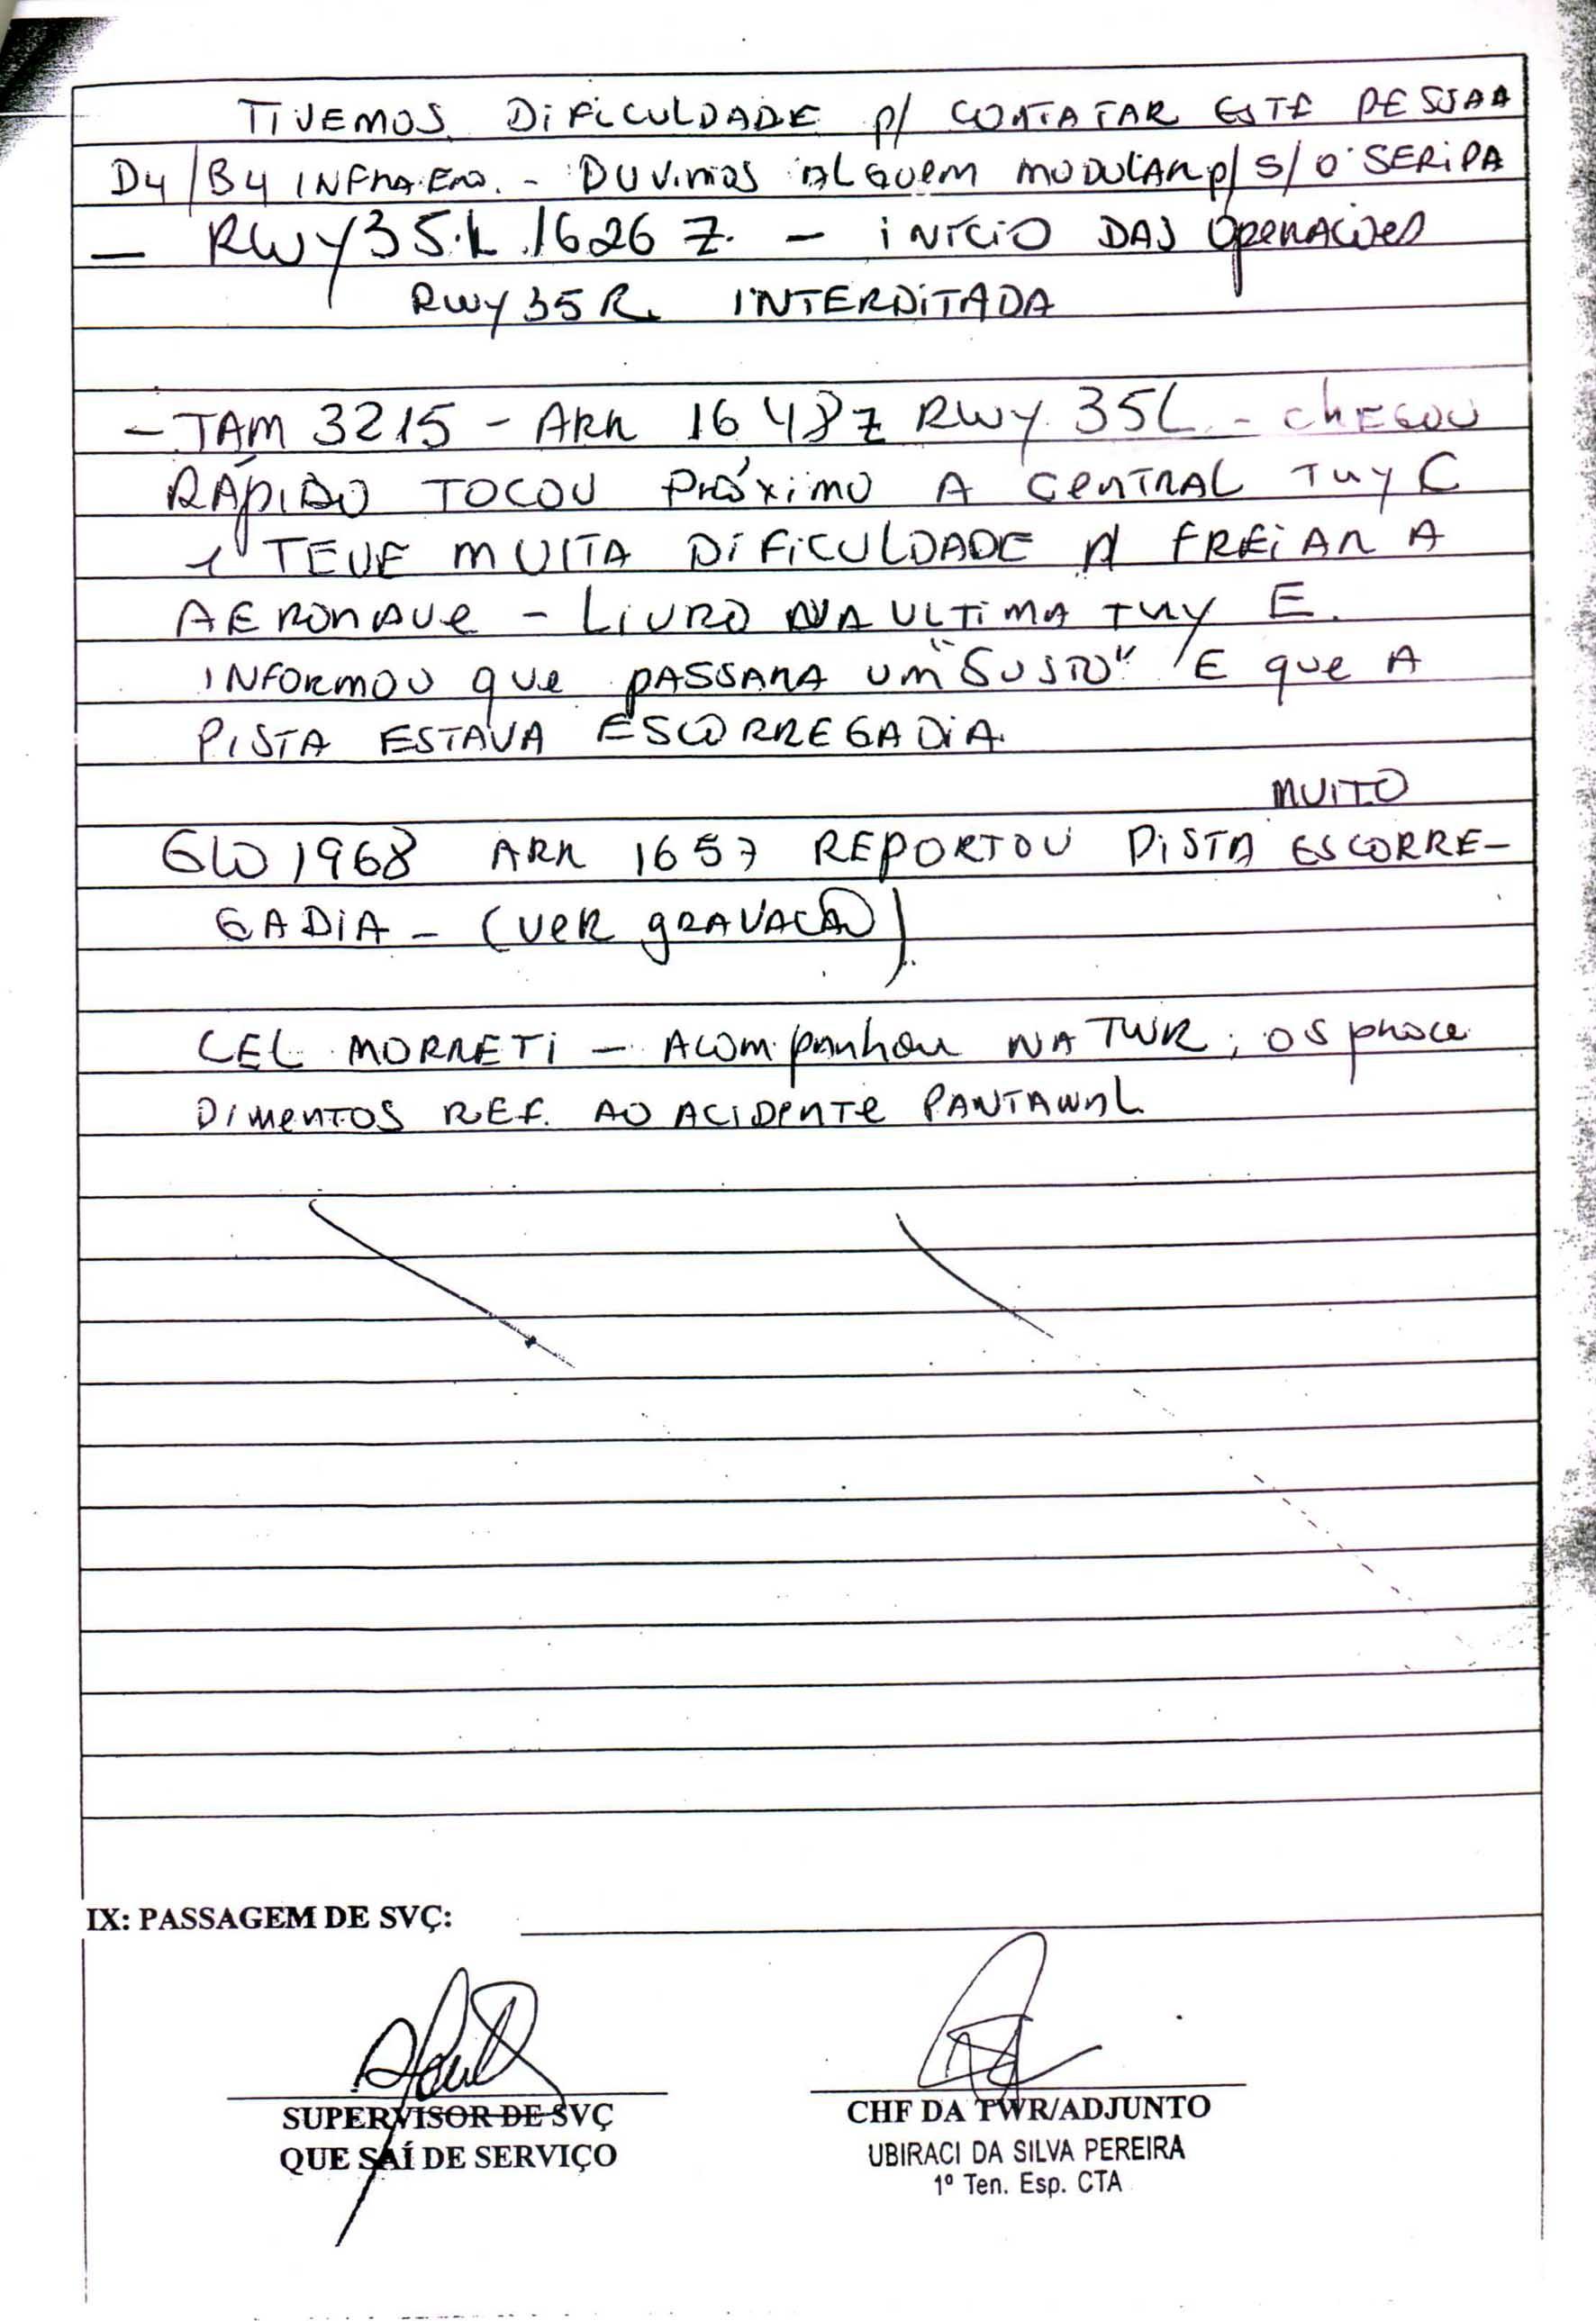 TIVEMOS DIFICULDADE p/ CONTATAR ESTE PESSOAL
D4/B4 INFRAERO. - OUVIMOS ALGUEM MODULAR p/ S/O SERIPA
— RWY 35.L 1626 Z. — INÍCIO DAS OPERAÇÕES
RWY 35 R. INTERDITADA
- TAM 3215 - ARR 1648z RWY 35L - CHEGOU
RÁPIDO TOCOU PRÓXIMO A CENTRAL TWY C
TEVE MUITA DIFICULDADE p/ FREIAR A
AERONAVE - LIVRO NA ULTIMA TWY E.
INFORMOU que PASSARA UM "SUSTO" E que A
PISTA ESTAVA ESCORREGADIA.
MUITO
GLO 1968 ARR 1657 REPORTOU PISTA ESCORRE-
GADIA - (VER gRAVAÇÃO).
CEL MORRETI - Acompanhou NA TWR, OS proce
DIMENTOS REF. AO ACIDENTE PANTANAL
IX: PASSAGEM DE SVÇ:
SUPERVISOR DE SVÇ
QUE SAÍ DE SERVIÇO
CHF DA TWR/ADJUNTO
UBIRACI DA SILVA PEREIRA
1º Ten. Esp. CTA